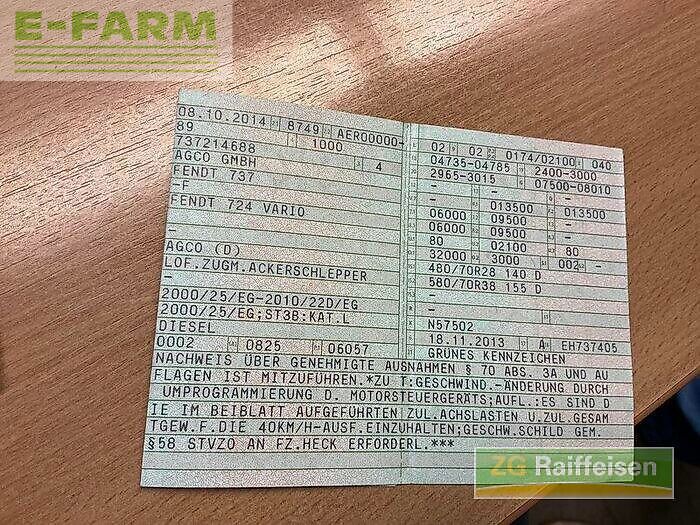 E-FARM
08.10.2014 8749 AER00000-
89
737214688 1000
AGCO GMBH 4
FENDT 737
-F
FENDT 724 VARIO
-
AGCO (D)
LOF.ZUGM.ACKERSCHLEPPER
-
2000/25/EG-2010/22D/EG
2000/25/EG;ST3B:KAT.L
DIESEL
0002 0825 06057
02 02 0174/02100 040
04735-04785 2400-3000
2965-3015 07500-08010
- - -
- 013500 013500
06000 09500 -
06000 09500 -
80 02100 80
32000 3000 002 -
480/70R28 140 D
580/70R38 155 D
-
-
N57502
18.11.2013 A EH737405
GRÜNES KENNZEICHEN
NACHWEIS ÜBER GENEHMIGTE AUSNAHMEN § 70 ABS. 3A UND AU
FLAGEN IST MITZUFÜHREN.*ZU T:GESCHWIND.-ÄNDERUNG DURCH
UMPROGRAMMIERUNG D. MOTORSTEUERGERÄTS;AUFL.:ES SIND D
IE IM BEIBLATT AUFGEFÜHRTEN ZUL.ACHSLASTEN U.ZUL.GESAM
TGEW.F.DIE 40KM/H-AUSF.EINZUHALTEN;GESCHW.SCHILD GEM.
§58 STVZO AN FZ.HECK ERFORDERL.***
ZG Raiffeisen